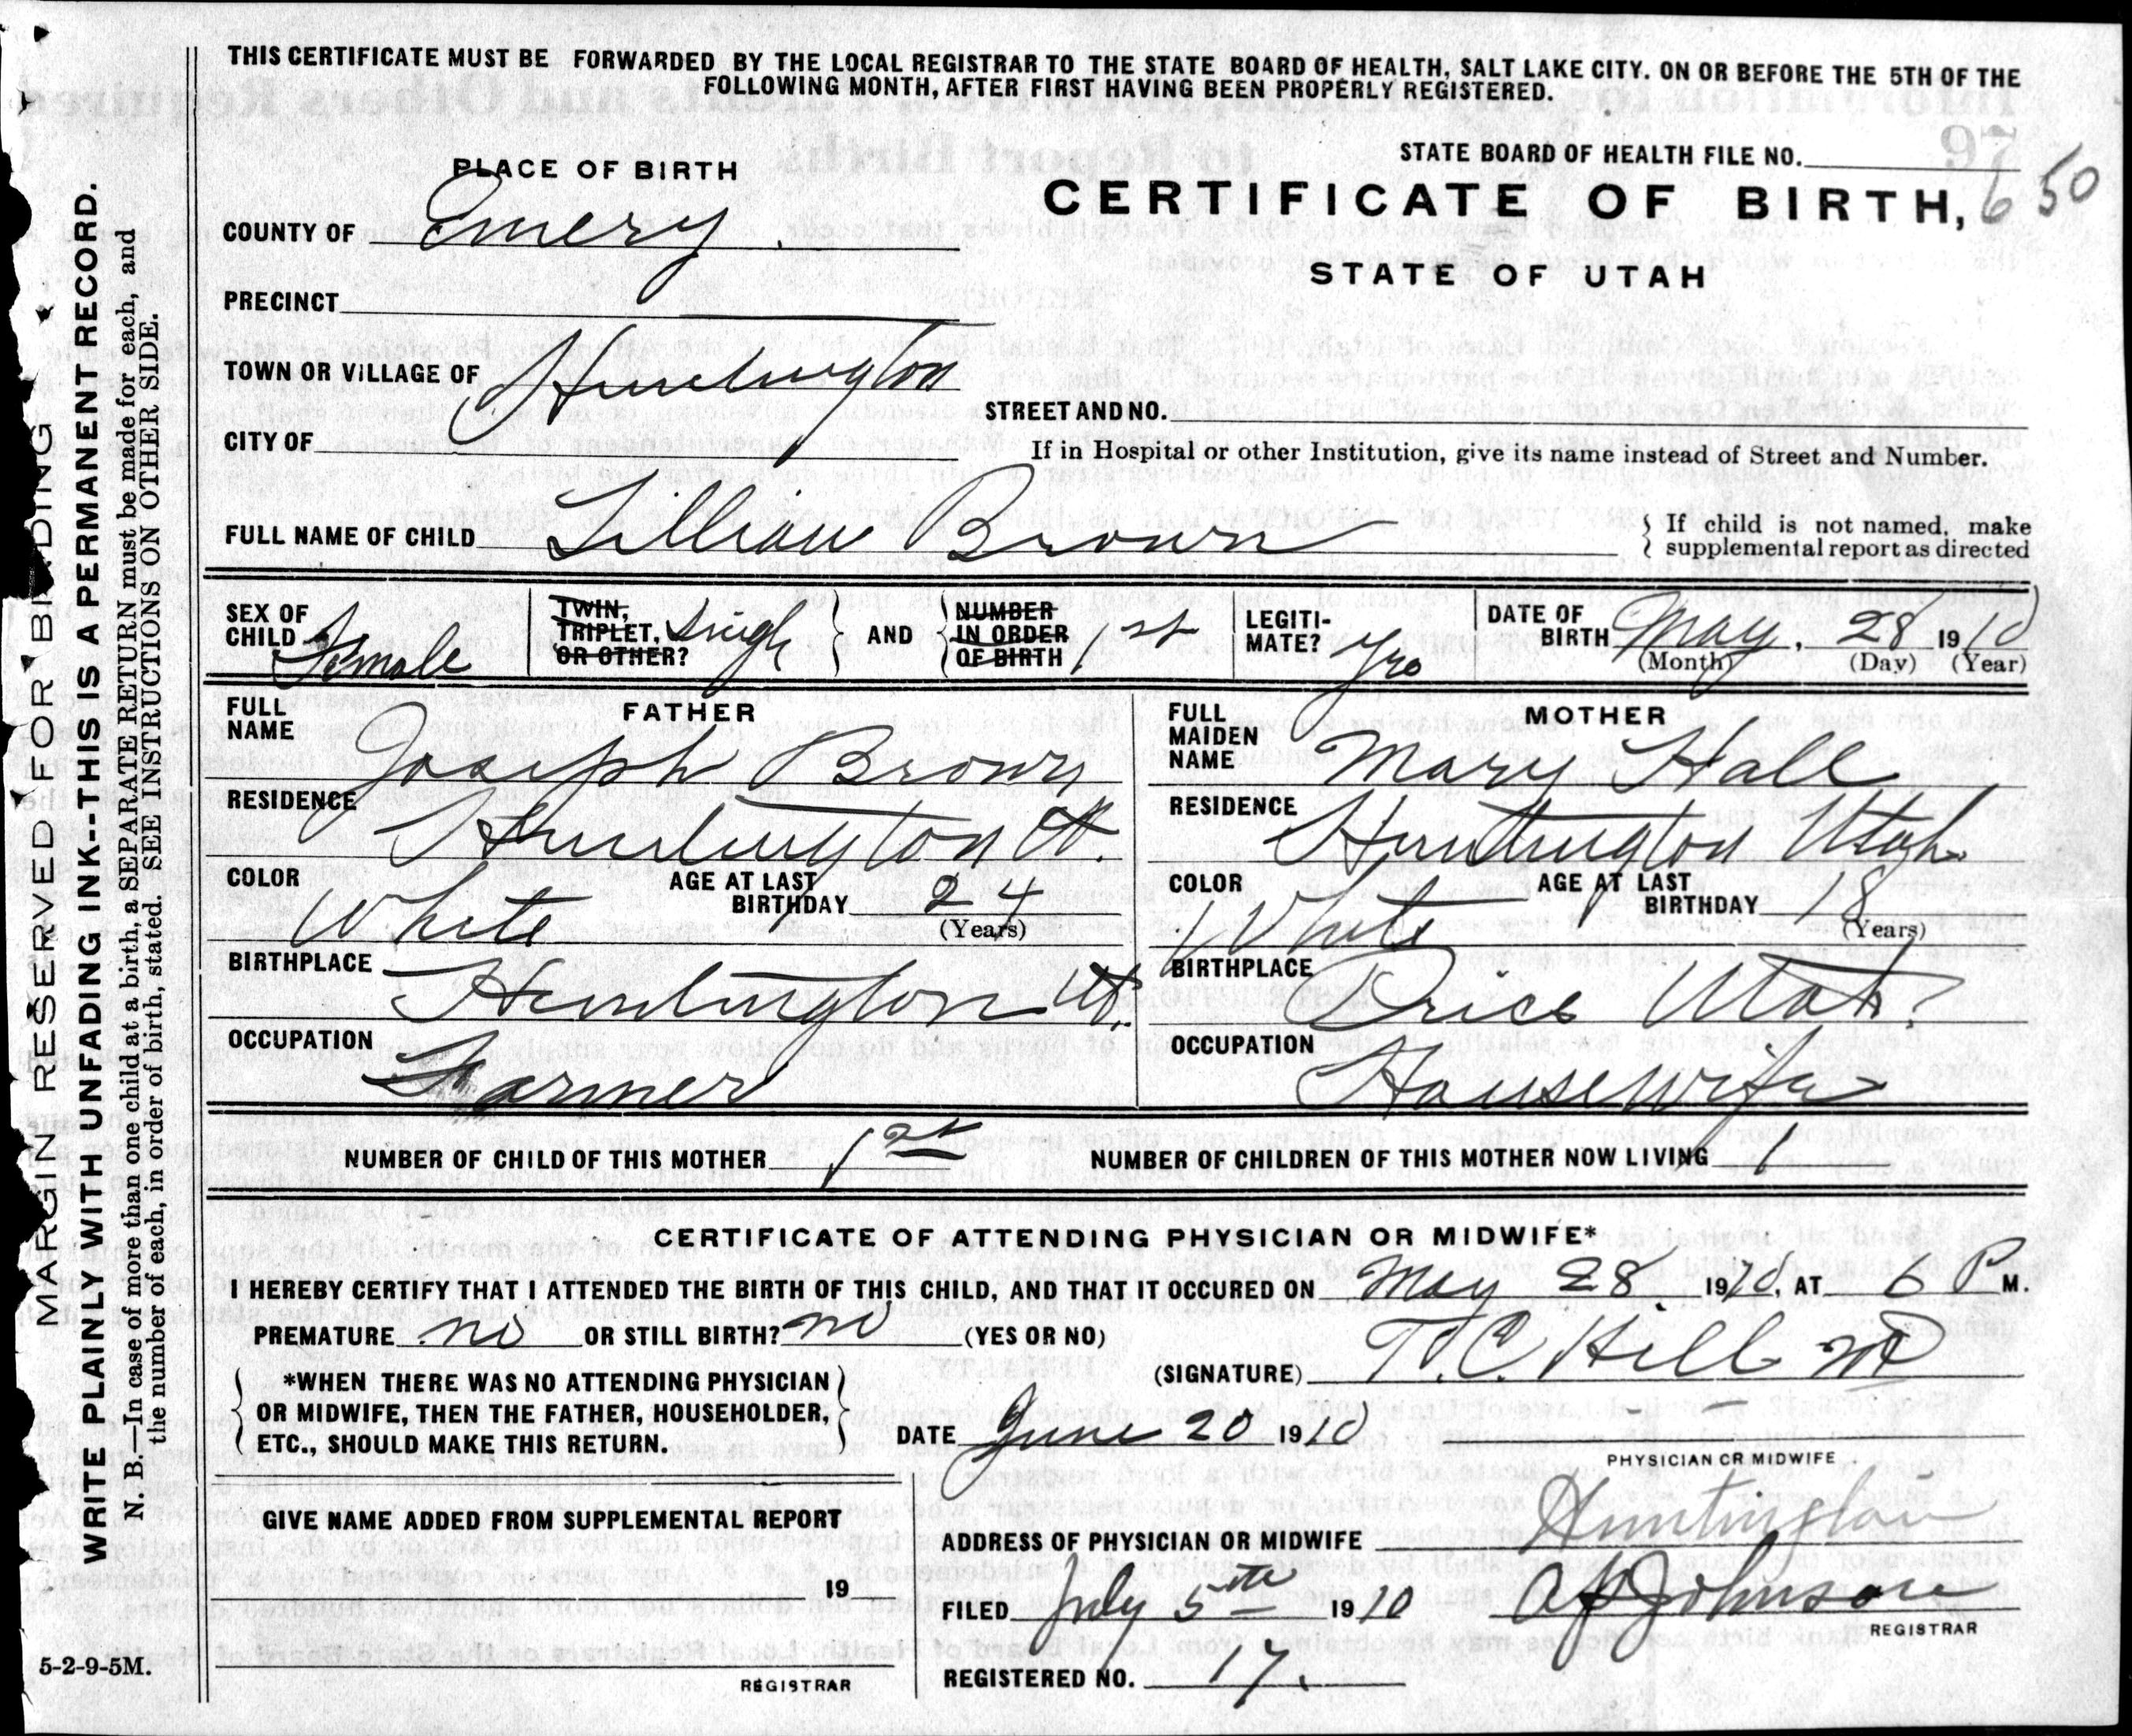 THIS CERTIFICATE MUST BE FORWARDED BY THE LOCAL REGISTRAR TO THE STATE BOARD OF HEALTH, SALT LAKE CITY. ON OR BEFORE THE 5TH OF THE
FOLLOWING MONTH, AFTER FIRST HAVING BEEN PROPERLY REGISTERED.
STATE BOARD OF HEALTH FILE NO.
650
PLACE OF BIRTH
CERTIFICATE OF BIRTH,
COUNTY OF Emery
STATE OF UTAH
PRECINCT
TOWN OR VILLAGE OF Huntington
STREET AND NO.
CITY OF
If in Hospital or other Institution, give its name instead of Street and Number.
FULL NAME OF CHILD Lillian Brown
If child is not named, make
supplemental report as directed
SEX OF CHILD Female
TWIN, TRIPLET, OR OTHER? Singl
AND
NUMBER IN ORDER OF BIRTH 1st
LEGITI-MATE? yes
DATE OF BIRTH May. 28 1910
(Month) (Day) (Year)
FATHER
FULL NAME Joseph Brown
RESIDENCE Huntington Ut.
COLOR White AGE AT LAST BIRTHDAY 24
(Years)
BIRTHPLACE Huntington Ut.
OCCUPATION Farmer
MOTHER
FULL MAIDEN NAME Mary Hall
RESIDENCE Huntington Utah.
COLOR White AGE AT LAST BIRTHDAY 18
(Years)
BIRTHPLACE Price Utah
OCCUPATION Housewife
NUMBER OF CHILD OF THIS MOTHER 1st NUMBER OF CHILDREN OF THIS MOTHER NOW LIVING 1
CERTIFICATE OF ATTENDING PHYSICIAN OR MIDWIFE*
I HEREBY CERTIFY THAT I ATTENDED THE BIRTH OF THIS CHILD, AND THAT IT OCCURED ON May 28, 1910, AT 6 P M.
PREMATURE no OR STILL BIRTH? no (YES OR NO)
(SIGNATURE) T.C. Hill MD
*WHEN THERE WAS NO ATTENDING PHYSICIAN
OR MIDWIFE, THEN THE FATHER, HOUSEHOLDER,
ETC., SHOULD MAKE THIS RETURN.
DATE June 20 1910
PHYSICIAN OR MIDWIFE
GIVE NAME ADDED FROM SUPPLEMENTAL REPORT
19
REGISTRAR
ADDRESS OF PHYSICIAN OR MIDWIFE Huntington
FILED July 5th 1910 Johnson
REGISTRAR
REGISTERED NO. 17.
MARGIN RESERVED FOR BINDING
WRITE PLAINLY WITH UNFADING INK---THIS IS A PERMANENT RECORD.
N. B.—In case of more than one child at a birth, a SEPARATE RETURN must be made for each, and
the number of each, in order of birth, stated. SEE INSTRUCTIONS ON OTHER SIDE.
5-2-9-5M.